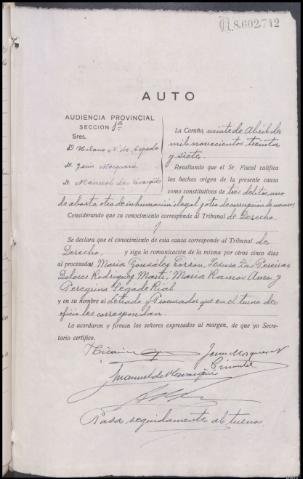 A.8.602,742
AUTO
AUDIENCIA PROVINCIAL
SECCIÓN 1ª
Sres.
D.
D.
D. Manuel
La Coruña, veinte de Abril de
mil novecientos treinta
y siete.
Resultando que el Sr. Fiscal califica
los hechos origen de la presente causa
como constitutivos de los delitos, uno
de aborto, otro de inhumación ilegal y otro de usurpación de
Considerando que su conocimiento corresponde al Tribunal de Derecho.
Se declara que el conocimiento de esta causa corresponde al Tribunal de
Derecho y siga la comunicación de la misma por otros cinco días
al procesadas María González
Dolores Rodríguez Martí, María Ramos Ares y
Peregrina Legade Rial
y en su nombre al Letrado y Procurador que en el turno de
oficio les correspondan
Lo acordaron y firman los señores expresados al margen, de que yo Secre-
tario certifico.
Pasa seguidamente al turno